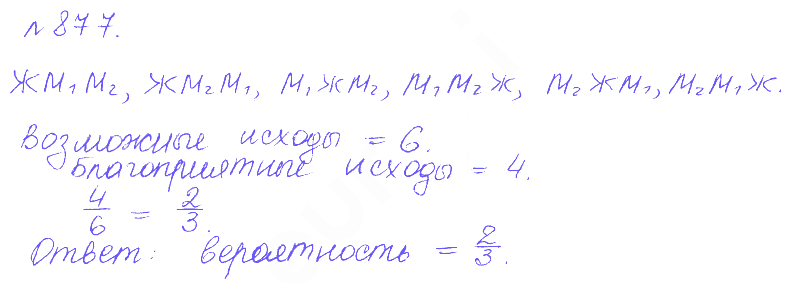 № 877.
ЖМ₁М₂, ЖМ₂М₁, М₁ЖМ₂, М₁М₂Ж, М₂ЖМ₁, М₂М₁Ж.
Возможные исходы = 6.
Благоприятные исходы = 4.
4/6 = 2/3.
Ответ: вероятность = 2/3.